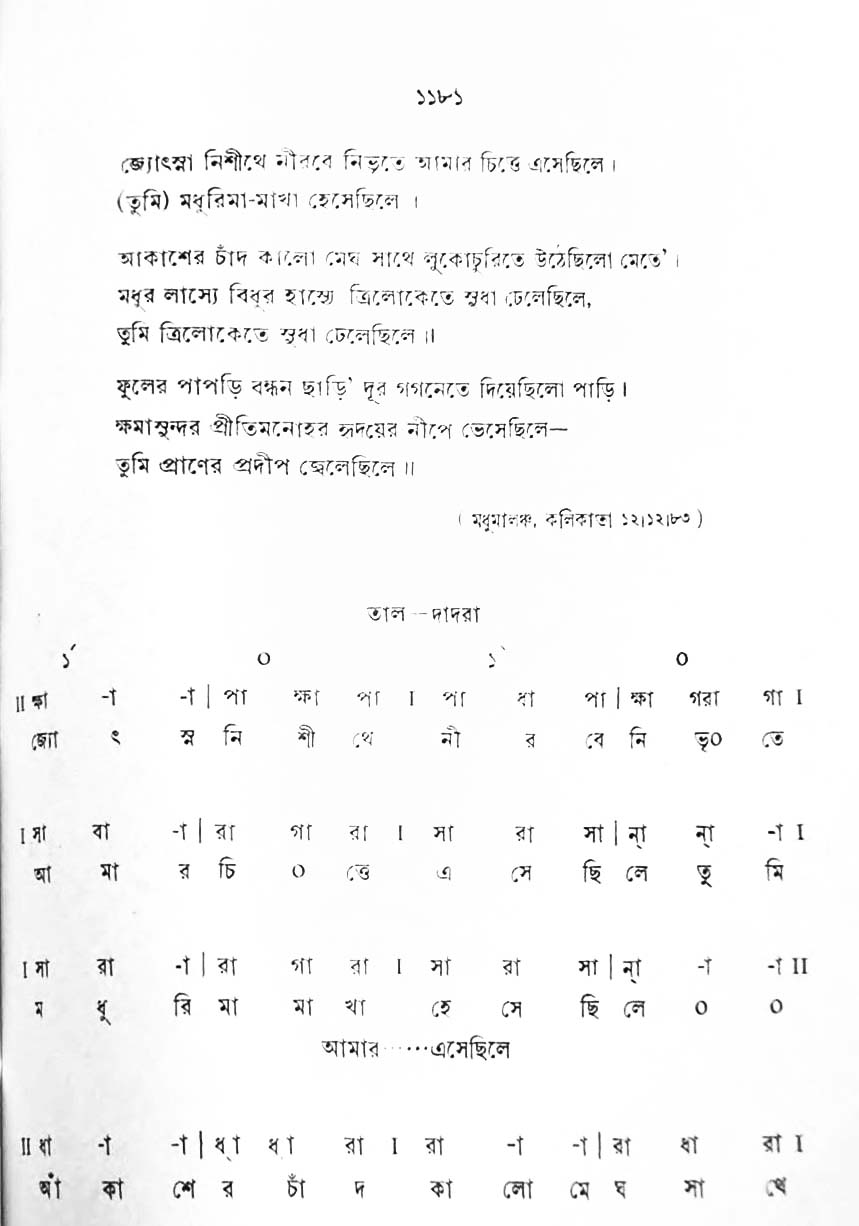 ১১৮১
জ্যোৎস্না নিশীথে নীরবে নিভৃতে আমার চিত্তে এসেছিলে ।
(তুমি) মধুরিমা-মাখা হেসেছিলে ।
আকাশের চাঁদ কালো মেঘ সাথে লুকোচুরিতে উঠেছিলো মেতে’ ।
মধুর লাস্যে বিধুর হাস্যে ত্রিলোকেতে সুধা ঢেলেছিলে,
তুমি ত্রিলোকেতে সুধা ঢেলেছিলে ॥
ফুলের পাপড়ি বন্ধন ছাড়ি’ দূর গগনেতে দিয়েছিলো পাড়ি ।
ক্ষমাসুন্দর প্রীতিমনোহর হৃদয়ের নীপে ভেসেছিলে—
তুমি প্রাণের প্রদীপ জ্বেলেছিলে ॥
( মধুমালঞ্চ, কলিকাতা ১২।১২।৮৩ )
তাল — দাদরা
১´ ০ ১` ০
II ক্ষা -া -া | পা ক্ষা পা I পা ধা পা | ক্ষা গরা গা I
জ্যো ৎ স্ন নি শী থে নী র বে নি ভৃ০ তে
I সা বা -া | রা গা রা I সা রা সা | ন্া ন্া -া I
আ মা র চি ০ ত্তে এ সে ছি লে তু মি
I সা রা -া | রা গা রা I সা রা সা | ন্া -া -া II
ম ধু রি মা মা খা হে সে ছি লে ০ ০
আমার ······এসেছিলে
II ধা -া -া | ধ্া ধা রা I রা -া -া | রা ধা রা I
আঁ কা শে র চাঁ দ কা লো মে ঘ সা থে